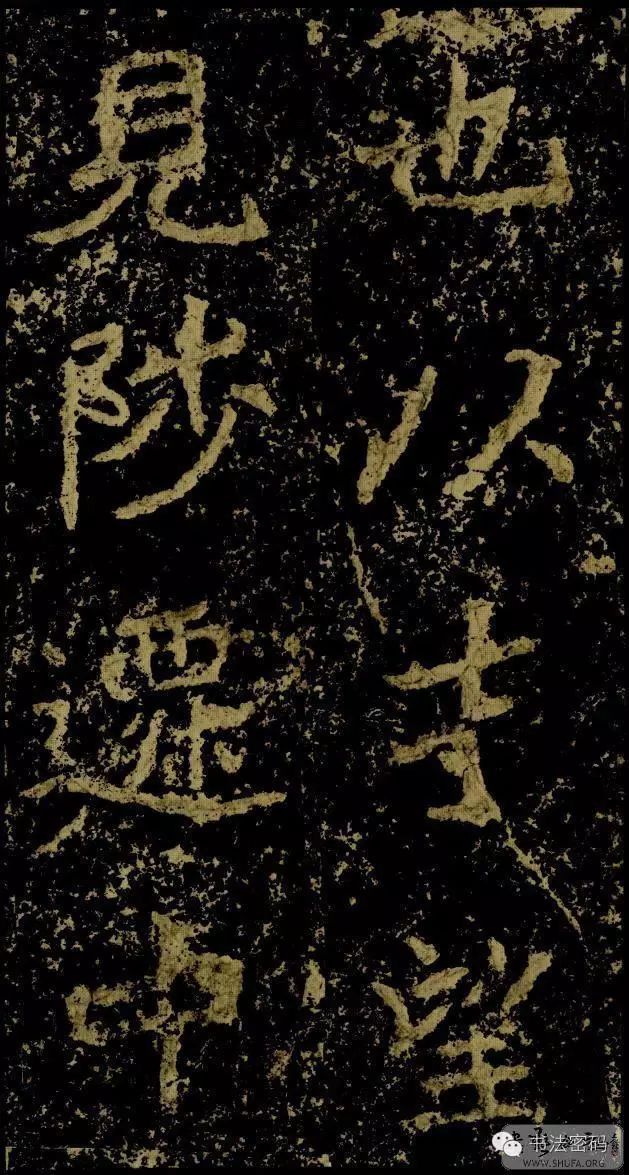 也以望
見陟遷中
书法密码
WWW.SHUFA.ORG